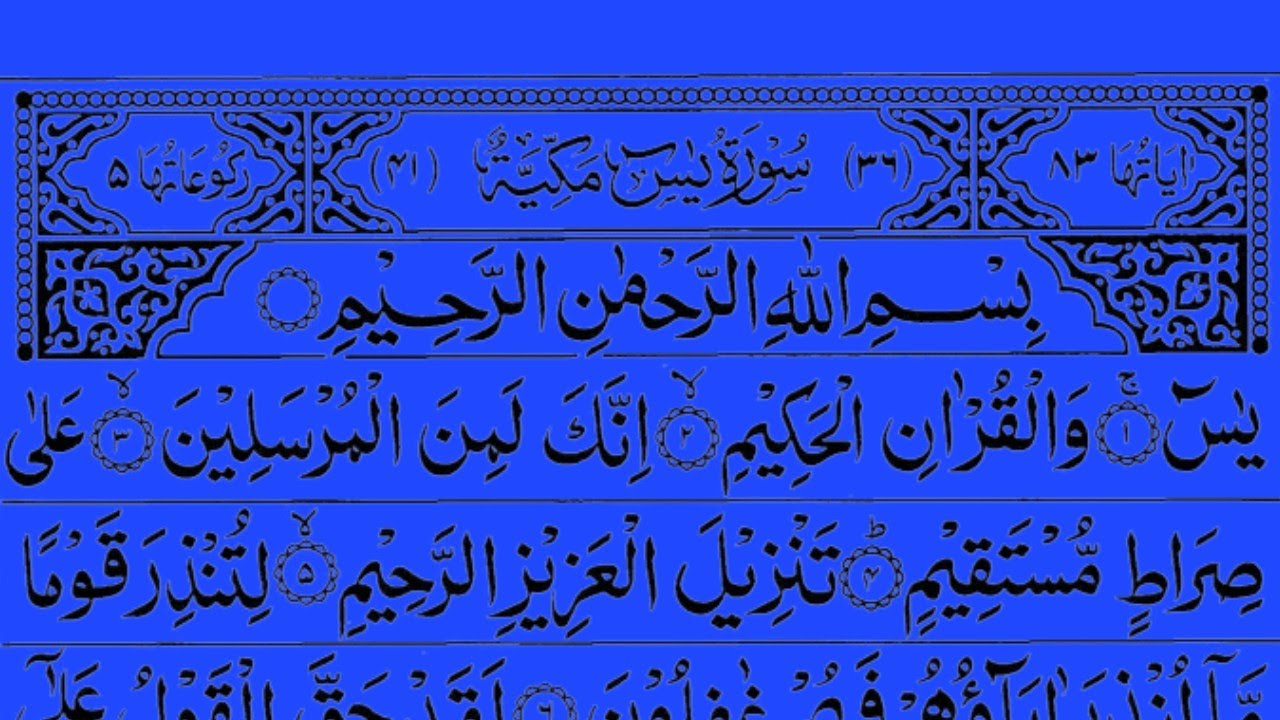 اٰيَاتُهَا ٨٣ (٣٦) سُوْرَةُ يٰسٓ مَكِّيَّةٌ (٤١) رُكُوْعَاتُهَا ٥
بِسْمِ اللّٰهِ الرَّحْمٰنِ الرَّحِيْمِ
يٰسٓ ۚ ﴿١﴾ وَالْقُرْاٰنِ الْحَكِيْمِ ۙ ﴿٢﴾ اِنَّكَ لَمِنَ الْمُرْسَلِيْنَ ۙ ﴿٣﴾ عَلٰى
صِرَاطٍ مُّسْتَقِيْمٍ ؕ ﴿۴﴾ تَنْزِيْلَ الْعَزِيْزِ الرَّحِيْمِ ۙ ﴿۵﴾ لِتُنْذِرَ قَوْمًا
مَّاۤ اُنْذِرَ اٰبَآؤُهُمْ فَهُمْ غٰفِلُوْنَ ﴿۶﴾ لَقَدْ حَقَّ الْقَوْلُ عَلٰٓى